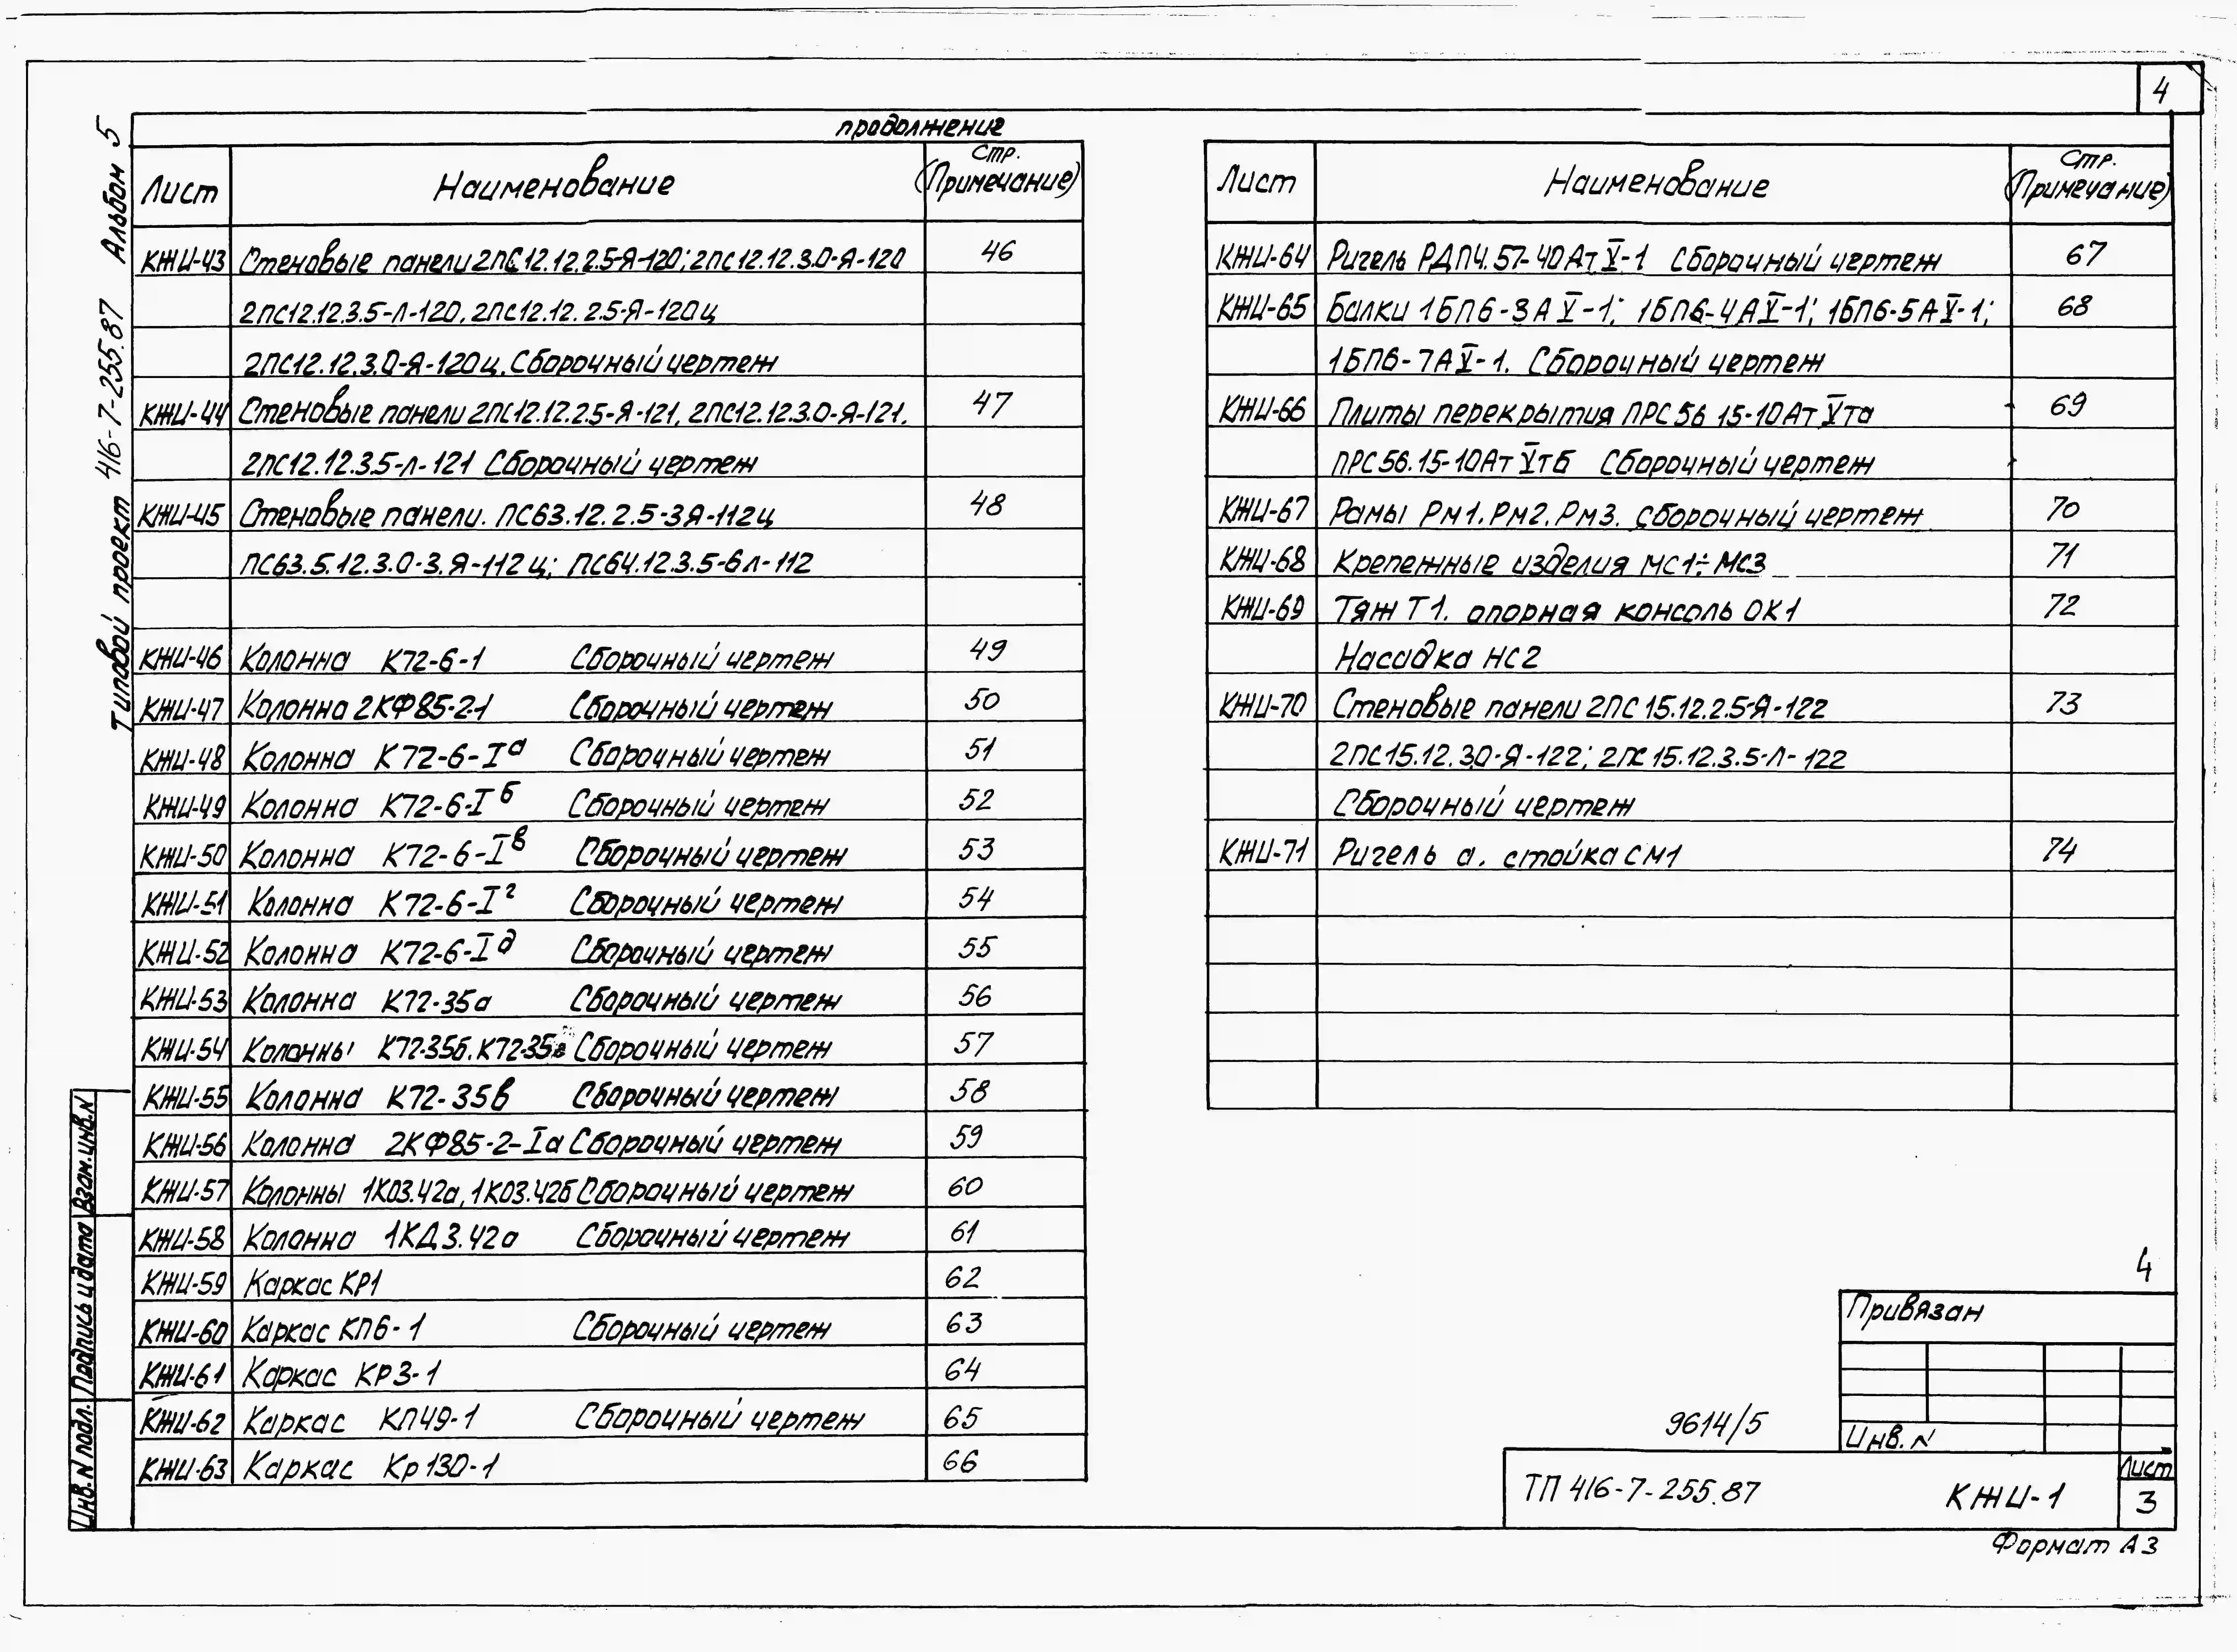 4
Типовой проект 416-7-255.87 Альбом 5
продолжение
Лист Наименование Стр. (Примечание)
КЖИ-43 Стеновые панели 2ПС12.12.2.5-Я-120; 2ПС12.12.3.0-Я-120 46
2ПС12.12.3.5-Л-120, 2ПС12.12.2.5-Я-120ц
2ПС12.12.3.0-Я-120ц. Сборочный чертеж
КЖИ-44 Стеновые панели 2ПС12.12.2.5-Я-121, 2ПС12.12.3.0-Я-121. 47
2ПС12.12.3.5-Л-121 Сборочный чертеж
КЖИ-45 Стеновые панели. ПС63.12.2.5-3Я-112ц 48
ПС63.5.12.3.0-3.Я-112ц; ПС64.12.3.5-6л-112
КЖИ-46 Колонна К72-6-1 Сборочный чертеж 49
КЖИ-47 Колонна 2КФ85-2-1 Сборочный чертеж 50
КЖИ-48 Колонна К72-6-Iа Сборочный чертеж 51
КЖИ-49 Колонна К72-6-Iб Сборочный чертеж 52
КЖИ-50 Колонна К72-6-Iв Сборочный чертеж 53
КЖИ-51 Колонна К72-6-Iг Сборочный чертеж 54
КЖИ-52 Колонна К72-6-Iд Сборочный чертеж 55
КЖИ-53 Колонна К72-35а Сборочный чертеж 56
КЖИ-54 Колонны К72-35б. Сборочный чертеж 57
КЖИ-55 Колонна К72-35в Сборочный чертеж 58
КЖИ-56 Колонна 2КФ85-2-Iа Сборочный чертеж 59
КЖИ-57 Колонны 1К03.42а, 1К03.42б Сборочный чертеж 60
КЖИ-58 Колонна 1КД3.42а Сборочный чертеж 61
КЖИ-59 Каркас КР1 62
КЖИ-60 Каркас КП6-1 Сборочный чертеж 63
КЖИ-61 Каркас КР3-1 64
КЖИ-62 Каркас КП49-1 Сборочный чертеж 65
КЖИ-63 Каркас Кр130-1 66
Лист Наименование Стр. (Примечание)
КЖИ-64 Ригель РДП4.57-40АтV-1 Сборочный чертеж 67
КЖИ-65 Балки 1БП6-3АV-1; 1БП6-4АV-1; 1БП6-5АV-1; 68
1БП6-7АV-1. Сборочный чертеж
КЖИ-66 Плиты перекрытия ПРС56 15-10АтVта 69
ПРС56.15-10АтVтб Сборочный чертеж
КЖИ-67 Рамы Рм1. Рм2. Рм3. сборочный чертеж 70
КЖИ-68 Крепежные изделия мс1÷мс3 71
КЖИ-69 Тяж Т1. опорная консоль ОК1 72
Насадка НС2
КЖИ-70 Стеновые панели 2ПС15.12.2.5-Я-122 73
2ПС15.12.3.0-Я-122; 2ПС15.12.3.5-Л-122
Сборочный чертеж
КЖИ-71 Ригель а. стойка СМ1 74
4
Привязан
Инв. N
9614/5
ТП 416-7-255.87 КЖИ-1
Лист
3
Формат А3
Инв. N подл. Подпись и дата Взам. инв. N